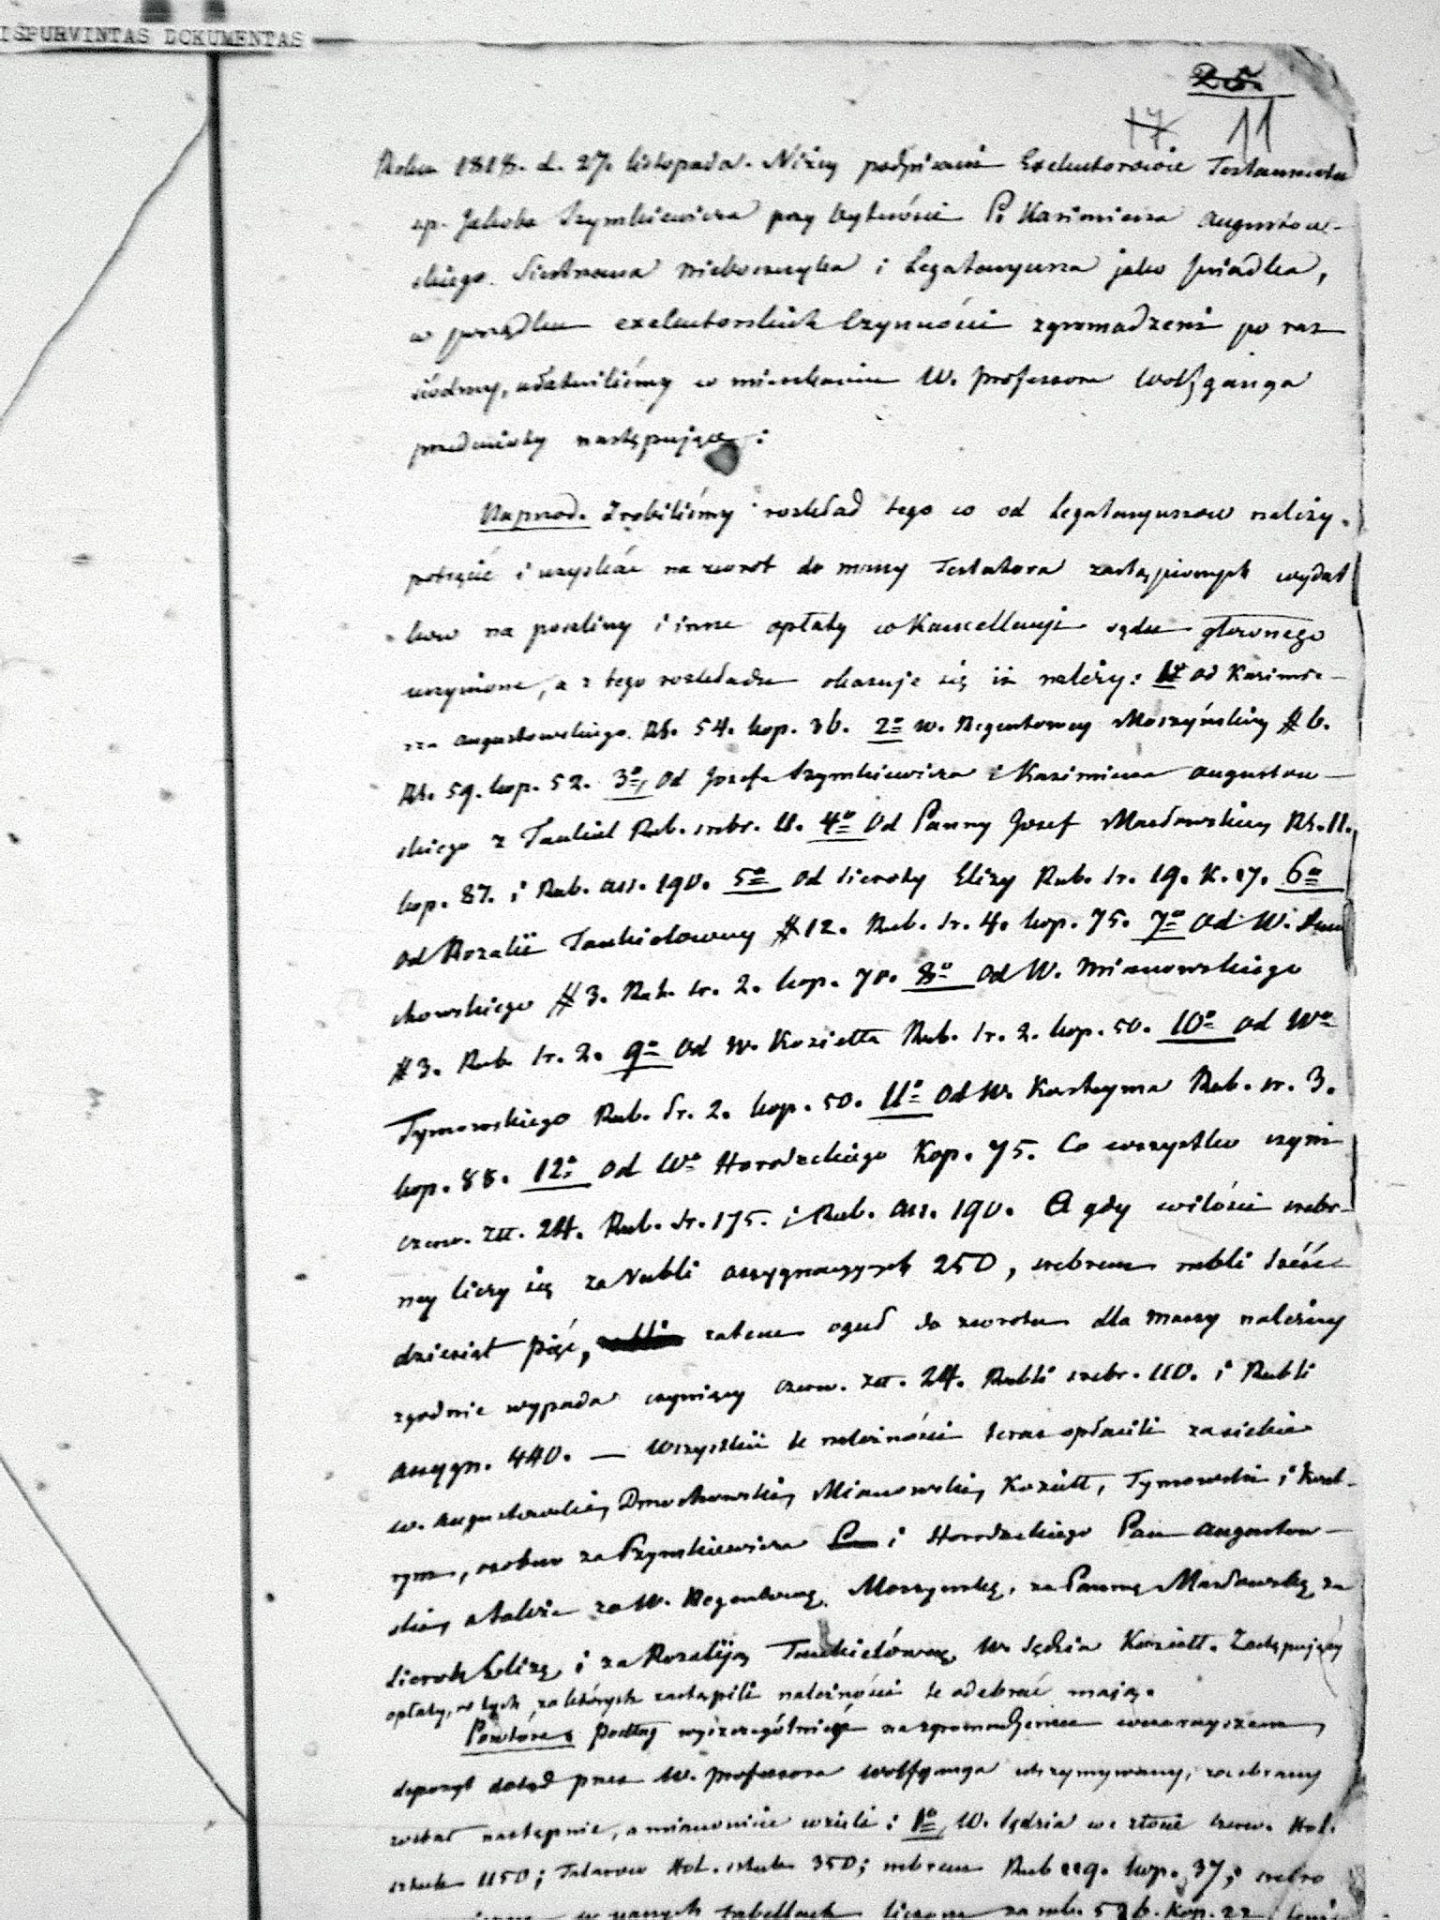 IŠPURVINTAS DOKUMENTAS
25.
17 11
Roku 1818. d. 27. listopada. Niżey podpisani Exekutorowie Testamentu
sp. Jakoba Szymkiewicza przy bytności P. Kazimierza Augustow-
skiego Siostrzana nieboszczyka i Legataryusza jako świadka,
w porządku exekutorskich czynności zgromadzeni po raz
siódmy, ułatwiliśmy w mieszkaniu W. Professora Wolfganga
przedmioty następujące:
Naprzod. Zrobiliśmy rozkład tego co od Legataryuszow należy
potrącić i uzyskać na zwrot do massy Testatora zastąpionych wydat
kow na poszliny i inne opłaty w Kancellaryi sądu głownego
uczynione, a z tego rozkładu okazuje się iż należy: 1º od Kazimie-
rza Augustowskiego Rb. 54. kop. 36. 2º W. Regentowey Moszyńskiey # 6.
Rb. 59. kop. 52. 3º, Od Jozefa Szymkiewicza i Kazimierza Augustow-
skiego z Rub. srebr. 11. 4º Od Panny Jozef Masłowskiey Rb. 11.
kop. 87. i Rub. ass. 190. 5º od sieroty Elizy Rub. sr. 19. K. 17. 6º
od Rozalii Taukielowny # 12. Rub. sr. 4. kop. 75. 7º od W. Dmu
chowskiego # 3. Rub. sr. 2. kop. 70. 8º od W. Mianowskiego
# 3. Rub. sr. 2. 9º od W. Koziełła Rub. sr. 2. kop. 50. 10º od Wº
Tymowskiego Rub. Sr. 2. kop. 50. 11º od W. Kostryma Rub. sr. 3.
kop. 88. 12º od Wº Horodeckiego Kop. 75. Co wszystko czyni
czerw. zł. 24. Rub. sr. 175. i Rub. ass. 190. A gdy w ilości srebr-
ney liczy się za rubli assygnacyynych 250, srebrem rubli sześć-
dziesiąt pięć, zatem oguł do zwrotu dla massy należny
zgodnie wypada czyniący czerw. zł. 24. Rubli srebr. 110. i Rubli
assygn. 440. — Wszystkie te należności teraz opłacili za siebie
W. Augustowski, Dmochowski, Mianowski, Koziełł, Tymowski i Kost-
rym, osobno za Szymkiewicza i Horodeckiego Pan Augustow-
ski, a także za W. Regentową Moszynską, za Pannę Masłowską, za
sierotę Elizę, i za Rozaliją Taukielównę, W. Sędzia Koziełł. Zastępujący
opłaty, od tych, za których zastąpili należności te odebrać mają.
Powtóre: Podług wyszczególnienia na zgromadzeniu
depozyt dotąd przez W. Professora Wolfganga utrzymywany, rozebrany
został następnie, a mianowicie wzieli: 1º, W. Sędzia we złocie czerw. Hol.
sztuk 1150; Talarow Hol. sztuk 350; srebrem Rub 119. kop. 37; srebro
w tabellach liczone za rub. 526. Kop. 22.